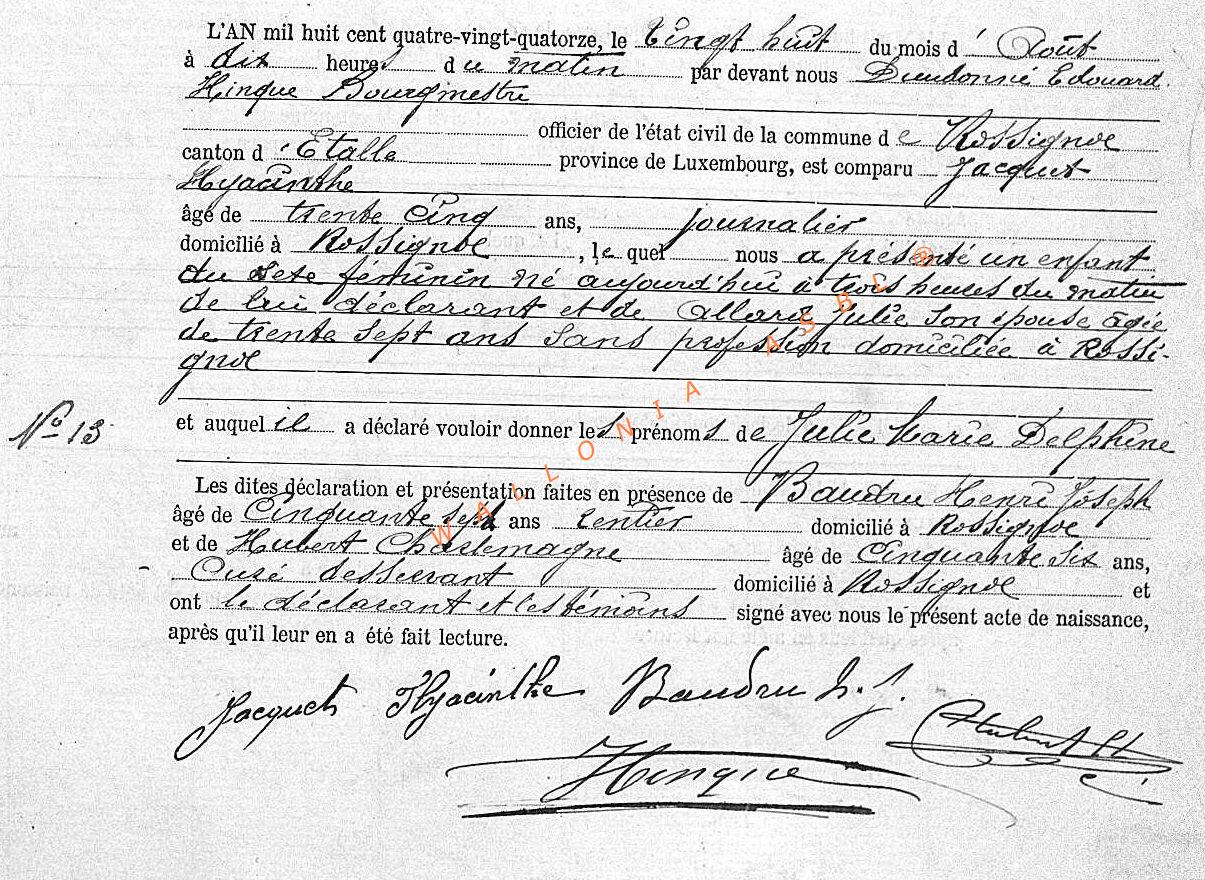 L'AN mil huit cent quatre-vingt-quatorze, le Vingt huit du mois d'Août
à dix heures du matin par devant nous Dieudonné Edouard
Hinque Bourgmestre
officier de l'état civil de la commune de Rossignol
canton d'Etalle province de Luxembourg, est comparu Jacquet
Hyacinthe
âgé de trente Cinq ans, journalier
domicilié à Rossignol, le quel nous a présenté un enfant
du sexe féminin né aujourd'hui à trois heures du matin
de lui déclarant et de Allard Julie son épouse âgée
de trente sept ans sans profession domiciliée à Rossi-
gnol
No 13
et auquel il a déclaré vouloir donner les prénoms de Julie Marie Delphine
Les dites déclaration et présentation faites en présence de Baudru Henri Joseph
âgé de Cinquante sept ans rentier domicilié à Rossignol
et de Hubert Charlemagne âgé de Cinquante six ans,
Curé desservant domicilié à Rossignol et
ont le déclarant et les témoins signé avec nous le présent acte de naissance,
après qu'il leur en a été fait lecture.
Jacquet Hyacinthe Baudru h. j.
Hubert Ch
Hinque
WALLONIA ASBL ®